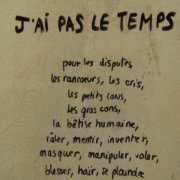 J'AI PAS LE TEMPS
pour les disputes,
les rancœurs, les cris,
les petits cons,
les gros cons,
la bêtise humaine,
râler, mentir, inventer,
masquer, manipuler, voler,
blesser, haïr, se plaindre